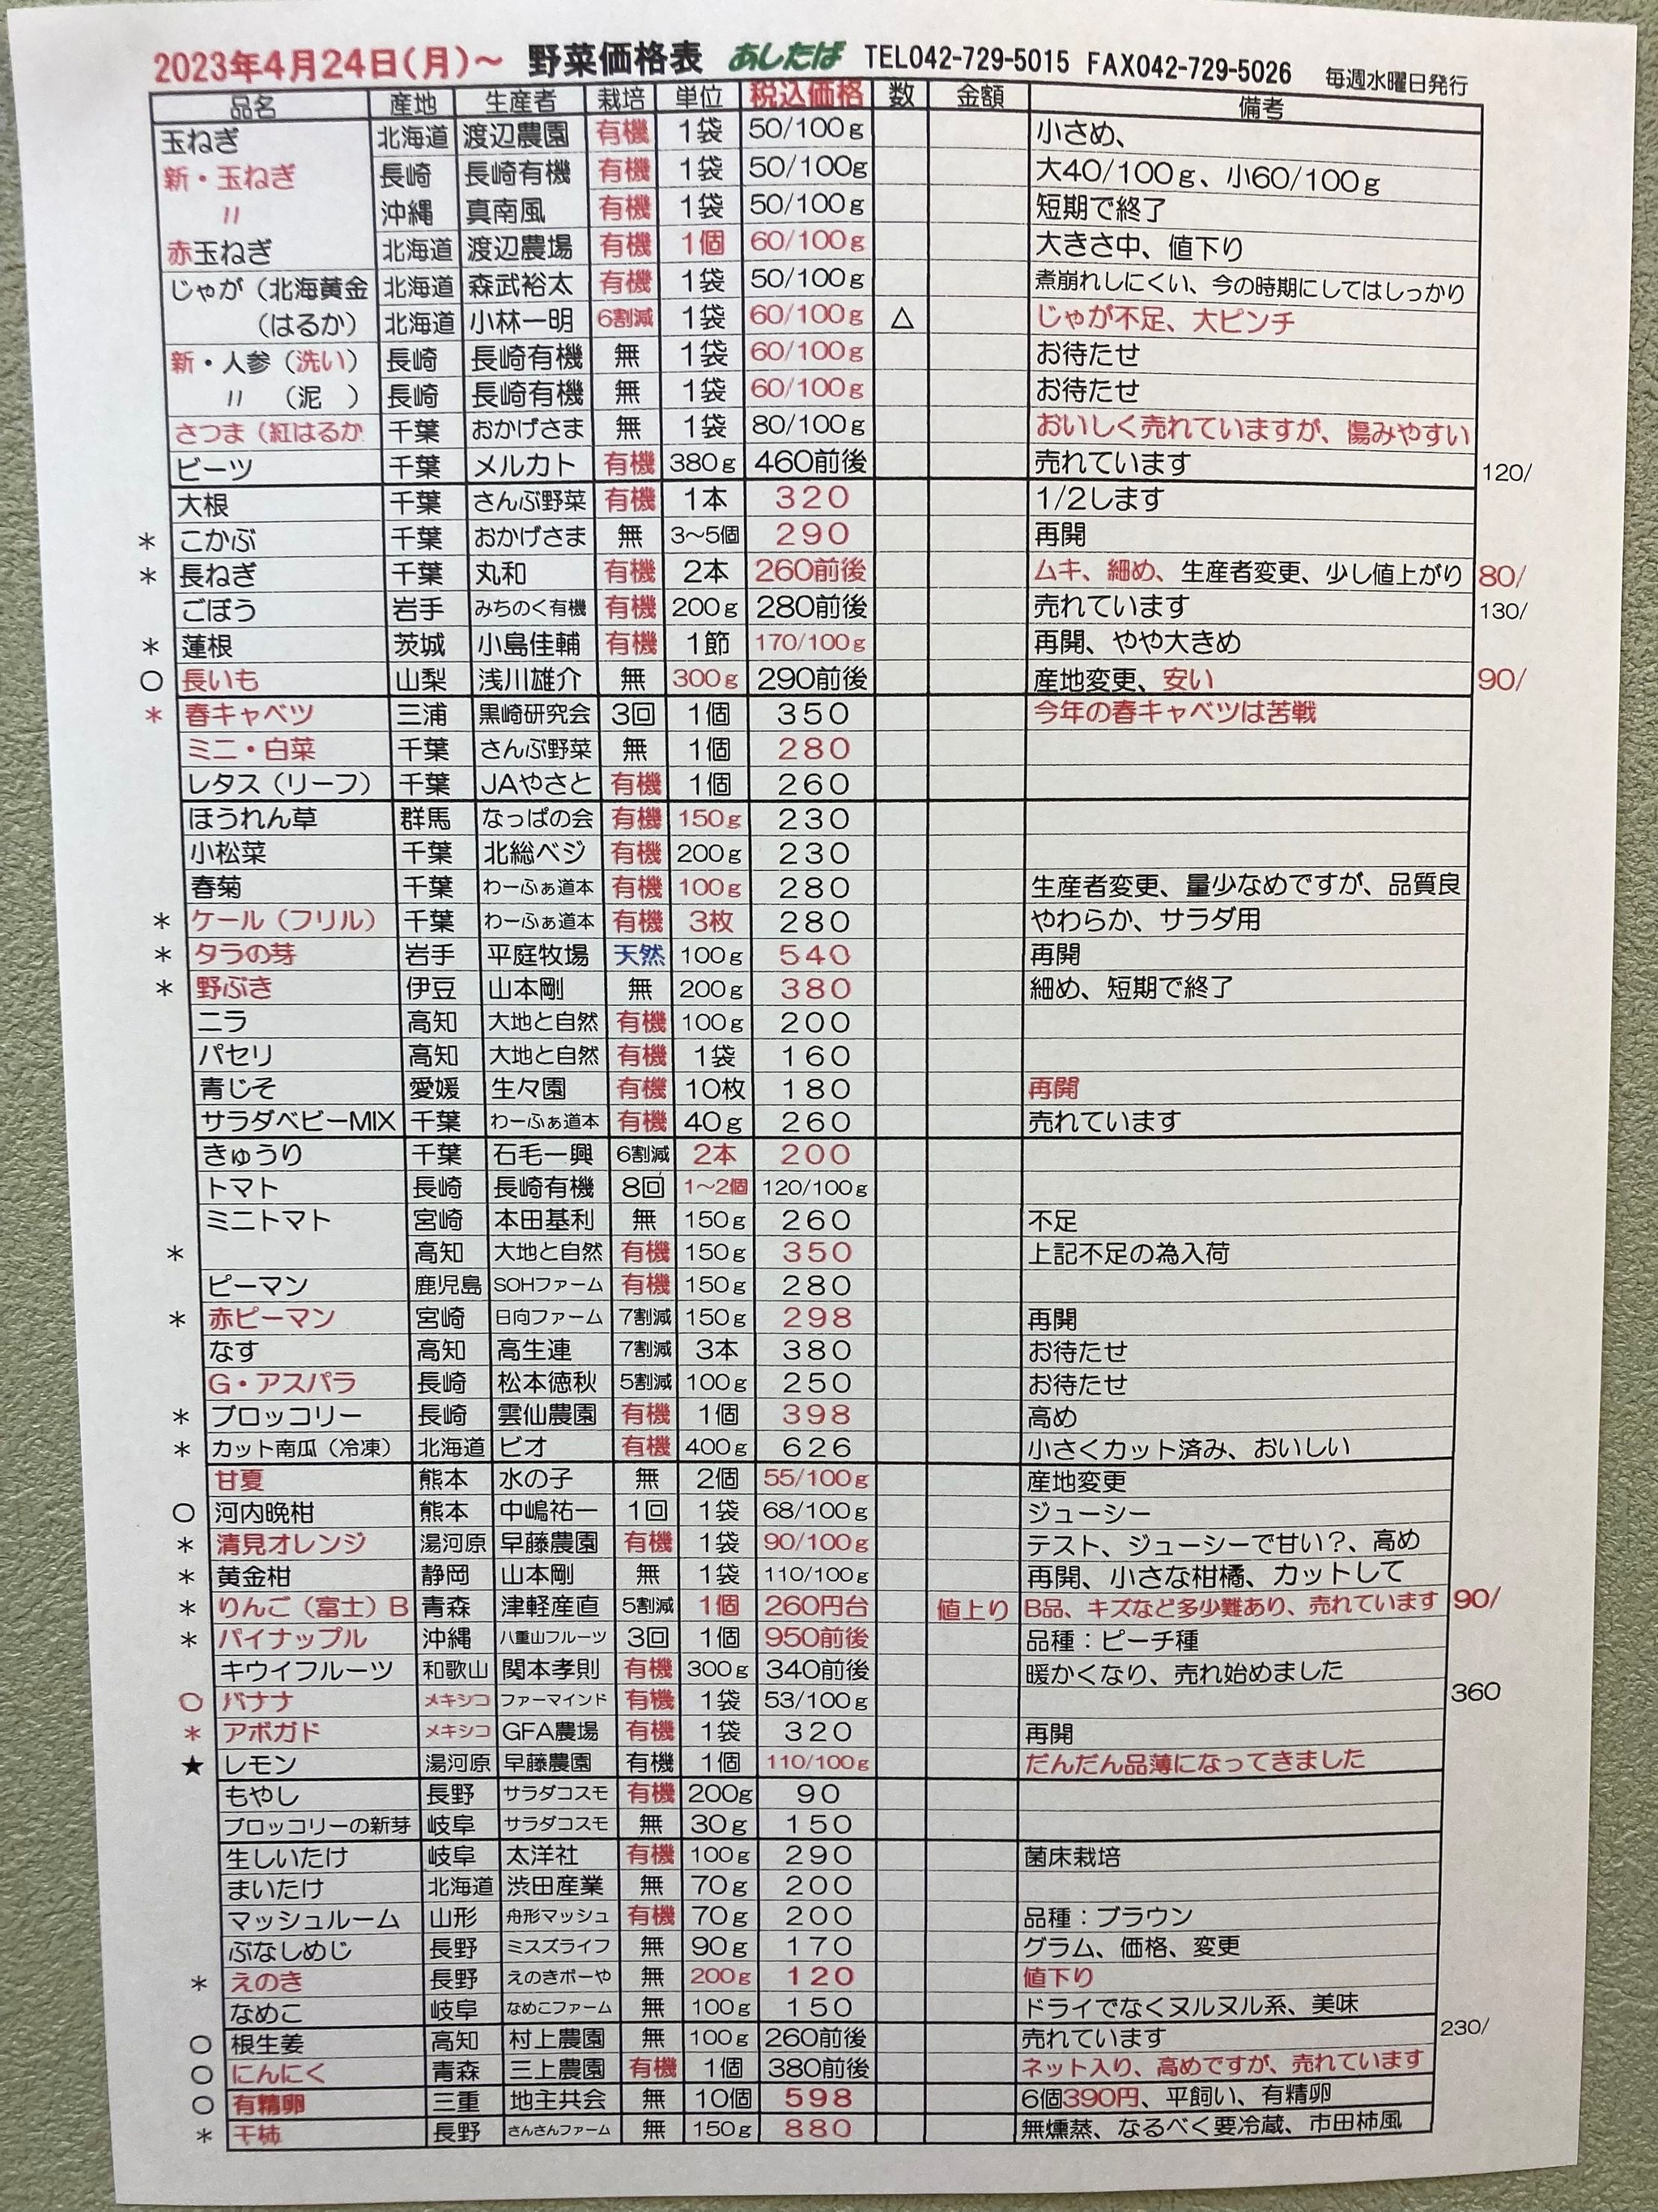 2023年4月24日(月)～ 野菜価格表 あしたば TEL042-729-5015 FAX042-729-5026 毎週水曜日発行
品名 産地 生産者 栽培 単位 税込価格 数 金額 備考
玉ねぎ 北海道 渡辺農園 有機 1袋 50/100g 小さめ、
新・玉ねぎ 長崎 長崎有機 有機 1袋 50/100g 大40/100g、小60/100g
〃 沖縄 真南風 有機 1袋 50/100g 短期で終了
赤玉ねぎ 北海道 渡辺農場 有機 1個 60/100g 大きさ中、値下り
じゃが（北海黄金 北海道 森武裕太 有機 1袋 50/100g 煮崩れしにくい、今の時期にしてはしっかり
（はるか） 北海道 小林一明 6割減 1袋 60/100g △ じゃが不足、大ピンチ
新・人参（洗い） 長崎 長崎有機 無 1袋 60/100g お待たせ
〃 （泥 ） 長崎 長崎有機 無 1袋 60/100g お待たせ
さつま（紅はるか 千葉 おかげさま 無 1袋 80/100g おいしく売れていますが、傷みやすい
ビーツ 千葉 メルカト 有機 380g 460前後 売れています 120/
大根 千葉 さんぶ野菜 有機 1本 320 1/2します
* こかぶ 千葉 おかげさま 無 3～5個 290 再開
* 長ねぎ 千葉 丸和 有機 2本 260前後 ムキ、細め、生産者変更、少し値上がり 80/
ごぼう 岩手 みちのく有機 有機 200g 280前後 売れています 130/
* 蓮根 茨城 小島佳輔 有機 1節 170/100g 再開、やや大きめ
○ 長いも 山梨 浅川雄介 無 300g 290前後 産地変更、安い 90/
* 春キャベツ 三浦 黒崎研究会 3回 1個 350 今年の春キャベツは苦戦
ミニ・白菜 千葉 さんぶ野菜 無 1個 280
レタス（リーフ） 千葉 JAやさと 有機 1個 260
ほうれん草 群馬 なっぱの会 有機 150g 230
小松菜 千葉 北総ベジ 有機 200g 230
春菊 千葉 わーふぁ道本 有機 100g 280 生産者変更、量少なめですが、品質良
* ケール（フリル） 千葉 わーふぁ道本 有機 3枚 280 やわらか、サラダ用
* タラの芽 岩手 平庭牧場 天然 100g 540 再開
* 野ぶき 伊豆 山本剛 無 200g 380 細め、短期で終了
ニラ 高知 大地と自然 有機 100g 200
パセリ 高知 大地と自然 有機 1袋 160
青じそ 愛媛 生々園 有機 10枚 180 再開
サラダベビーMIX 千葉 わーふぁ道本 有機 40g 260 売れています
きゅうり 千葉 石毛一興 6割減 2本 200
トマト 長崎 長崎有機 8回 1～2個 120/100g
ミニトマト 宮崎 本田基利 無 150g 260 不足
* 高知 大地と自然 有機 150g 350 上記不足の為入荷
ピーマン 鹿児島 SOHファーム 有機 150g 280
* 赤ピーマン 宮崎 日向ファーム 7割減 150g 298 再開
なす 高知 高生連 7割減 3本 380 お待たせ
G・アスパラ 長崎 松本徳秋 5割減 100g 250 お待たせ
* ブロッコリー 長崎 雲仙農園 有機 1個 398 高め
* カット南瓜（冷凍） 北海道 ビオ 有機 400g 626 小さくカット済み、おいしい
甘夏 熊本 水の子 無 2個 55/100g 産地変更
○ 河内晩柑 熊本 中嶋祐一 1回 1袋 68/100g ジューシー
* 清見オレンジ 湯河原 早藤農園 有機 1袋 90/100g テスト、ジューシーで甘い？、高め
* 黄金柑 静岡 山本剛 無 1袋 110/100g 再開、小さな柑橘、カットして
* りんご（富士）B 青森 津軽産直 5割減 1個 260円台 値上り B品、キズなど多少難あり、売れています 90/
* パイナップル 沖縄 八重山フルーツ 3回 1個 950前後 品種：ピーチ種
キウイフルーツ 和歌山 関本孝則 有機 300g 340前後 暖かくなり、売れ始めました
○ バナナ メキシコ ファーマインド 有機 1袋 53/100g 360
* アボガド メキシコ GFA農場 有機 1袋 320 再開
★ レモン 湯河原 早藤農園 有機 1個 110/100g だんだん品薄になってきました
もやし 長野 サラダコスモ 有機 200g 90
ブロッコリーの新芽 岐阜 サラダコスモ 無 30g 150
生しいたけ 岐阜 太洋社 有機 100g 290 菌床栽培
まいたけ 北海道 渋田産業 無 70g 200
マッシュルーム 山形 舟形マッシュ 有機 70g 200 品種：ブラウン
ぶなしめじ 長野 ミスズライフ 無 90g 170 グラム、価格、変更
* えのき 長野 えのきボーや 無 200g 120 値下り
なめこ 岐阜 なめこファーム 無 100g 150 ドライでなくヌルヌル系、美味
○ 根生姜 高知 村上農園 無 100g 260前後 売れています 230/
○ にんにく 青森 三上農園 有機 1個 380前後 ネット入り、高めですが、売れています
○ 有精卵 三重 地主共会 無 10個 598 6個390円、平飼い、有精卵
* 干柿 長野 さんさんファーム 無 150g 880 無燻蒸、なるべく要冷蔵、市田柿風